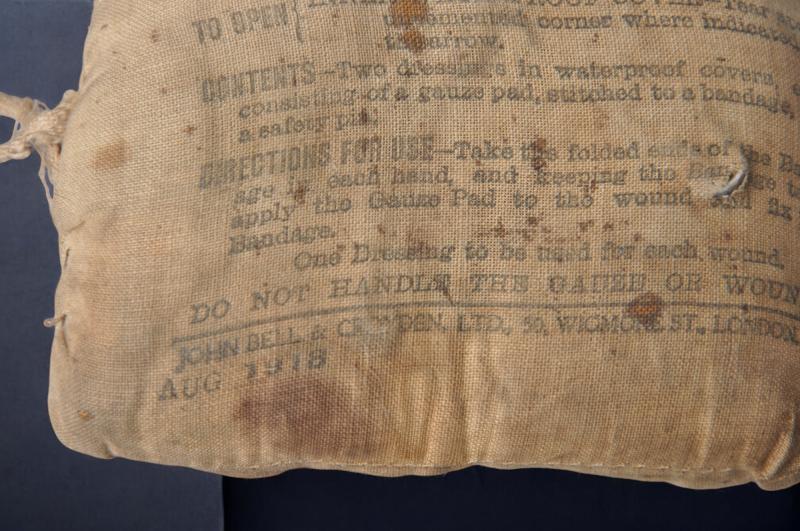 TO OPEN { PROOF COVER—Tear
uncemented corner where indicated
the arrow.
CONTENTS—Two dressings in waterproof covers,
consisting of a gauze pad, stitched to a bandage,
a safety pin.
DIRECTIONS FOR USE—Take the folded ends of the
age in each hand, and keeping the Bandage
apply the Gauze Pad to the wound and fix
Bandage.
One Dressing to be used for each wound.
DO NOT HANDLE THE GAUZE OR WOUN
JOHN BELL & CROYDEN, LTD., 50, WIGMORE ST., LONDON
AUG 1918